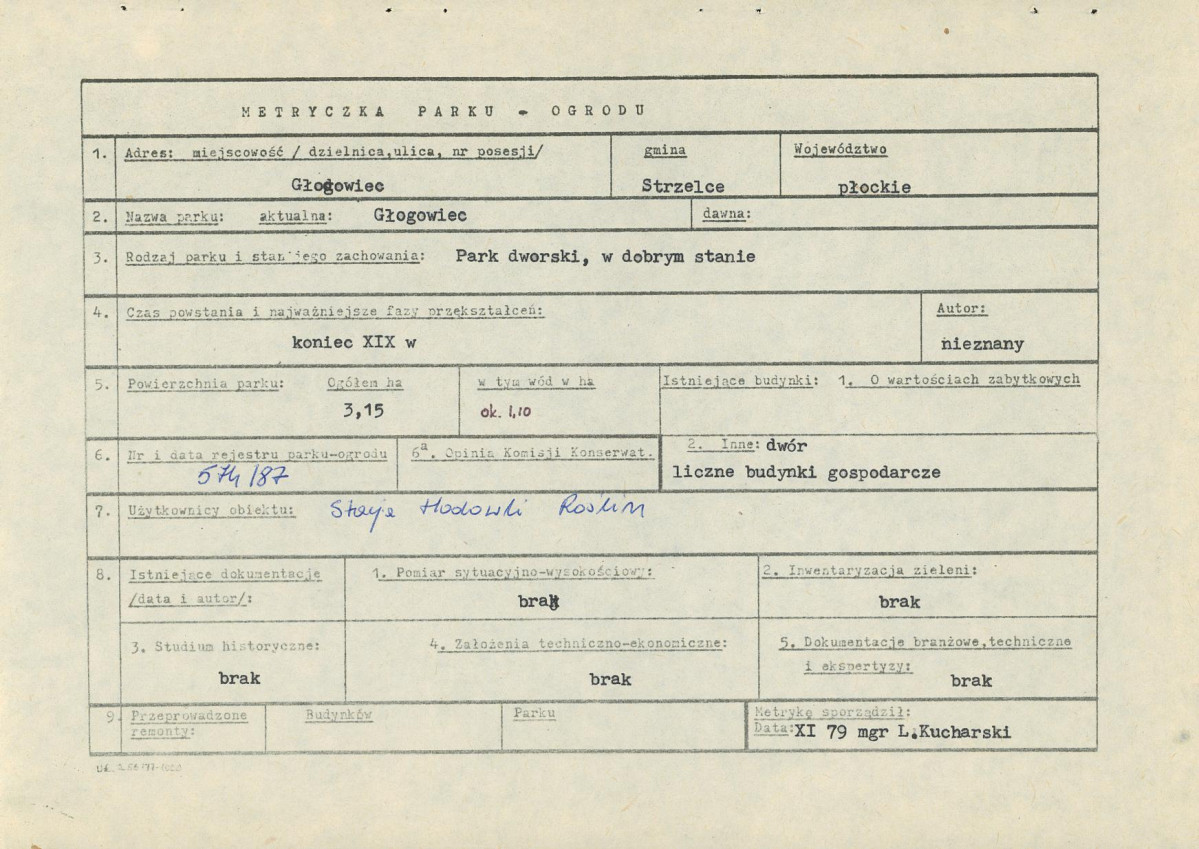 METRYCZKA PARKU - OGRODU
1. Adres: miejscowość / dzielnica,ulica, nr posesji/ gmina Województwo
Głogowiec Strzelce płockie
2. Nazwa parku: aktualna: Głogowiec dawna:
3. Rodzaj parku i stan jego zachowania: Park dworski, w dobrym stanie
4. Czas powstania i najważniejsze fazy przękształceń: Autor:
koniec XIX w nieznany
5. Powierzchnia parku: Ogółem ha w tym wód w ha Istniejące budynki: 1. O wartościach zabytkowych
3,15 ok. 1,10
6. Nr i data rejestru parku-ogrodu 6a. Opinia Komisji Konserwat. 2. Inne: dwór
574/87 liczne budynki gospodarcze
7. Użytkownicy obiektu: Stacja Hodowli Roślin
8. Istniejące dokumentacje 1. Pomiar sytuacyjno-wysokościowy: 2. Inwentaryzacja zieleni:
/data i autor/: brak brak
3. Studium historyczne: 4. Założenia techniczno-ekonomiczne: 5. Dokumentacje branżowe,techniczne
i ekspertyzy:
brak brak brak
9. Przeprowadzone Budynków Parku Metrykę sporządził:
remonty: Data: XI 79 mgr L.Kucharski